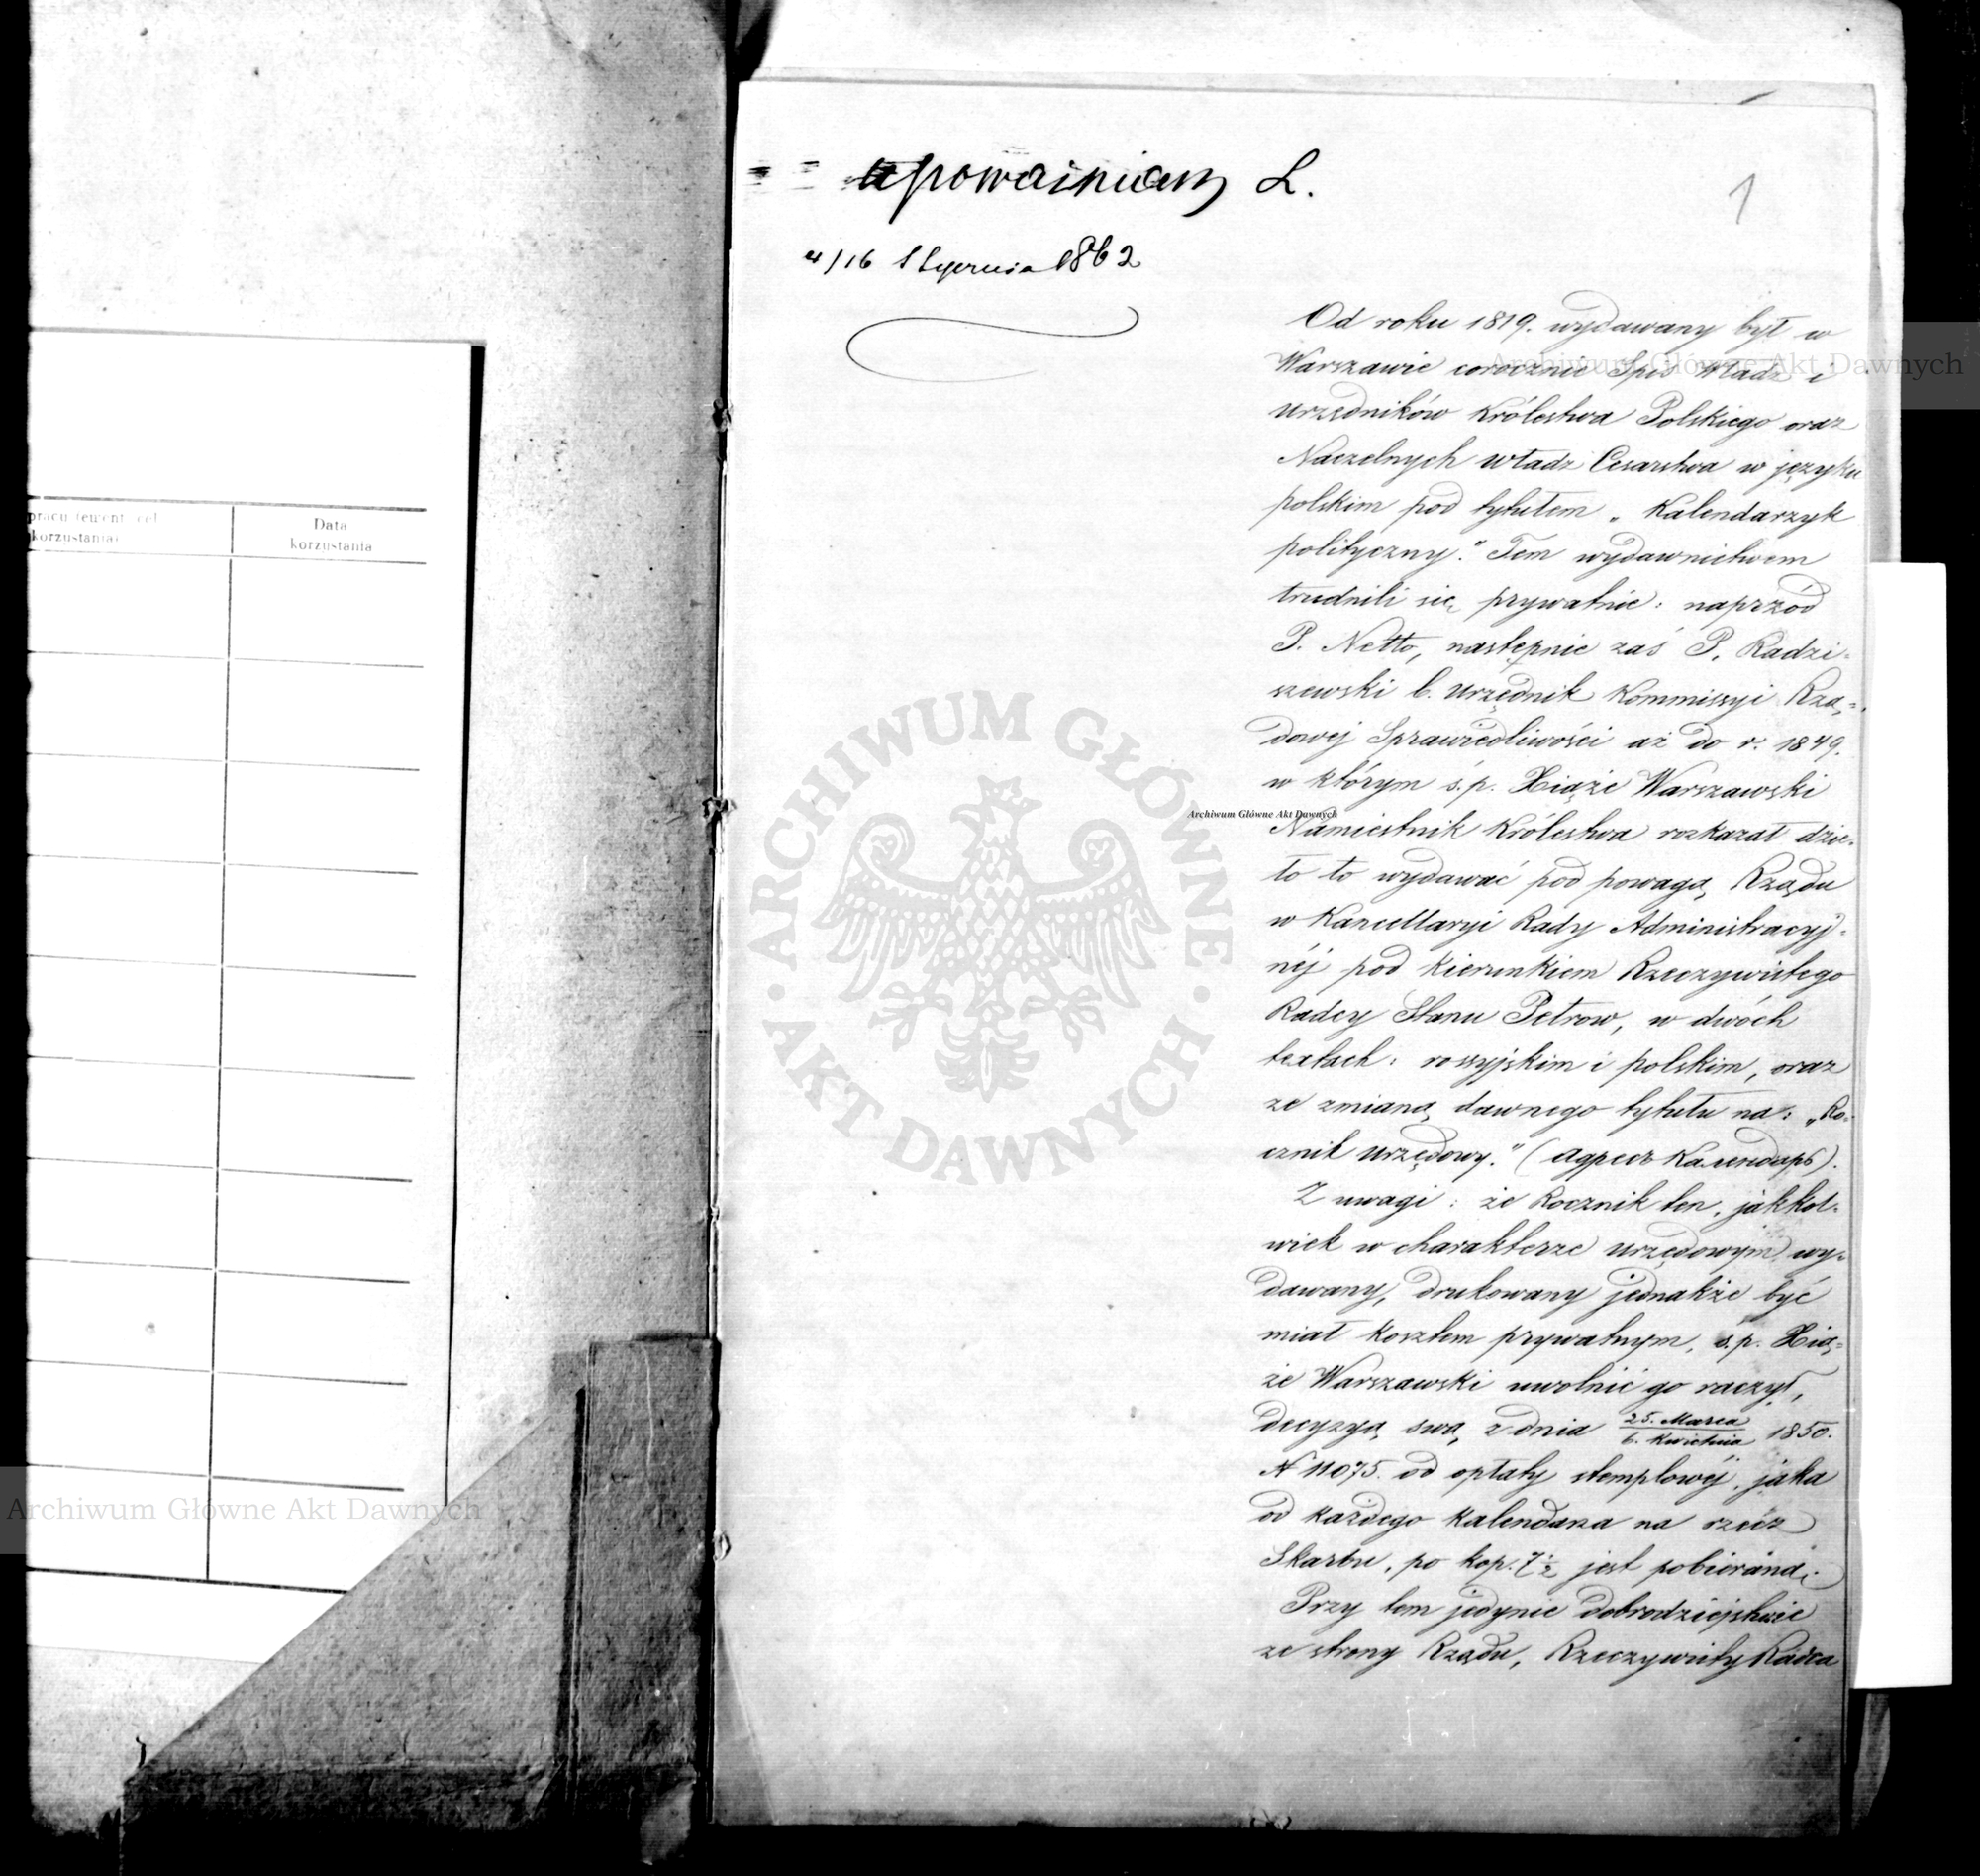 upoważniam L.
1
4/16 Stycznia 1862
Od roku 1819. wydawany był w
Warszawie corocznie Spis Władz i
Urzędników Królestwa Polskiego oraz
Naczelnych Władz Cesarstwa w języku
polskim pod tytułem „Kalendarzyk
polityczny." Tem wydawnictwem
trudnili się prywatnie: naprzód
P. Netto, następnie zaś P. Radzi-
szewski b. Urzędnik Kommissyi Rzą-
dowej Sprawiedliwości aż do r. 1849.
w którym ś.p. Xiąże Warszawski
Namiestnik Królestwa rozkazał dzie-
ło to wydawać pod powagą Rządu
w Kancellaryi Rady Administracyj-
néj pod kierunkiem Rzeczywistego
Radcy Stanu Petrow, w dwóch
textach: rossyjskim i polskim, oraz
ze zmianą dawnego tytułu na: „Ro-
cznik Urzędowy." (Адресъ Календарь).
Z uwagi: że Rocznik ten, jakkol-
wiek w charakterze urzędowym wy-
dawany, drukowany jednakże być
miał kosztem prywatnym, ś.p. Xią-
że Warszawski uwolnić go raczył,
decyzyą swą z dnia 25. Marca / 6. Kwietnia 1850.
N 11075. od opłaty stemplowéj, jaka
od każdego kalendarza na rzecz
Skarbu, po kop. 7 1/2 jest pobieraną.
Przy tem jedynie dobrodziejstwie
ze strony Rządu, Rzeczywisty Radca
Data
korzustania
korzustania
Archiwum Główne Akt Dawnych
Archiwum Główne Akt Dawnych
Archiwum Główne Akt Dawnych
ARCHIWUM GŁÓWNE
AKT DAWNYCH